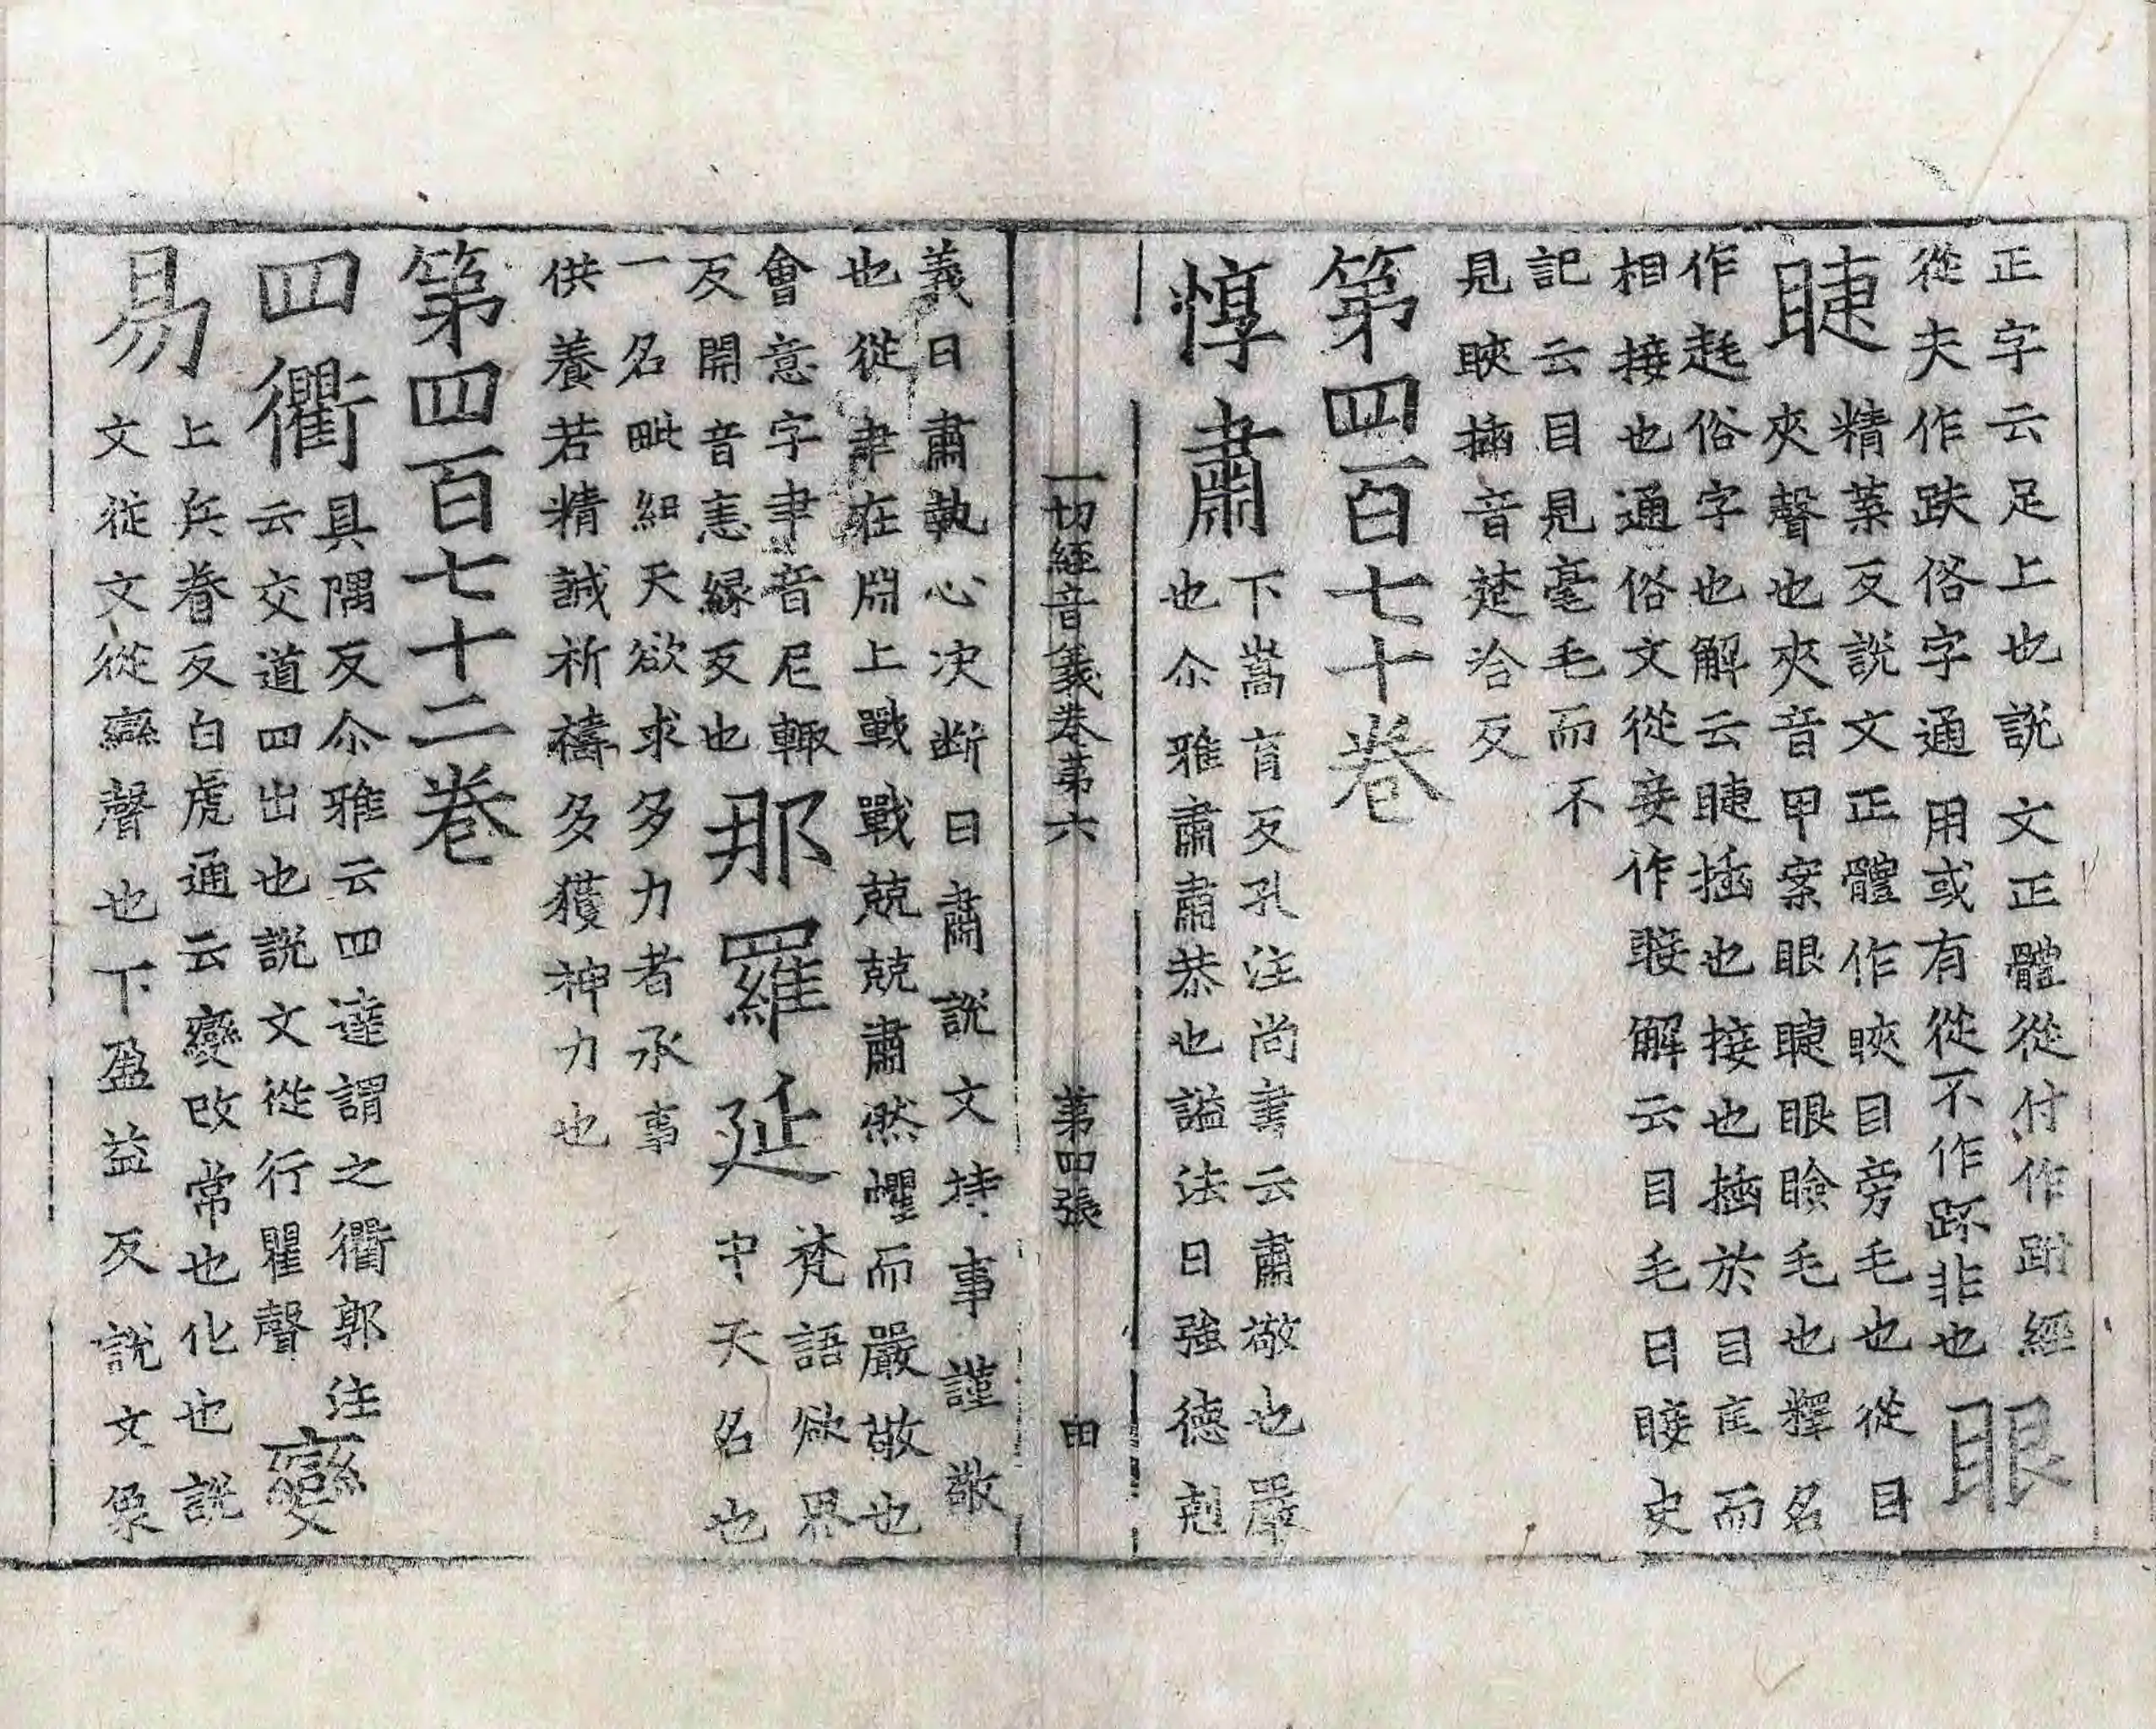 正字云足上也說文正體從付作跗經
從夫作趺俗字通用或有從不作趺非也眼
睫精葉反說文正體作䀹目旁毛也從目
夾聲也夾音甲案眼睫眼瞼毛也釋名
作𦕁俗字也解云睫插也接也插於目眶而
相接也通俗文從妾作䀹解云目毛曰䀹史
記云目見毫毛而不
見䀹插音楚洽反
第四百七十卷
惇肅下嵩育反孔注尚書云肅敬也嚴
也尒雅肅肅恭也謚法曰強德剋
一切經音義卷第六 第四張 田
義曰肅執心决断曰肅說文持事謹敬
也從𦘒在𣶒上戰戰兢兢肅然懼而嚴敬也
會意字𦘒音尼輒
反開音恚緣反也那羅延梵語欲界
中天名也
一名毗紐天欲求多力者承事
供養若精誠祈禱多獲神力也
第四百七十二卷
四衢具隅反尒雅云四達謂之衢郭注
云交道四出也說文從行瞿聲變
易上兵眷反白虎通云變改常也化也說
文從文從䜌聲也下盈益反說文象